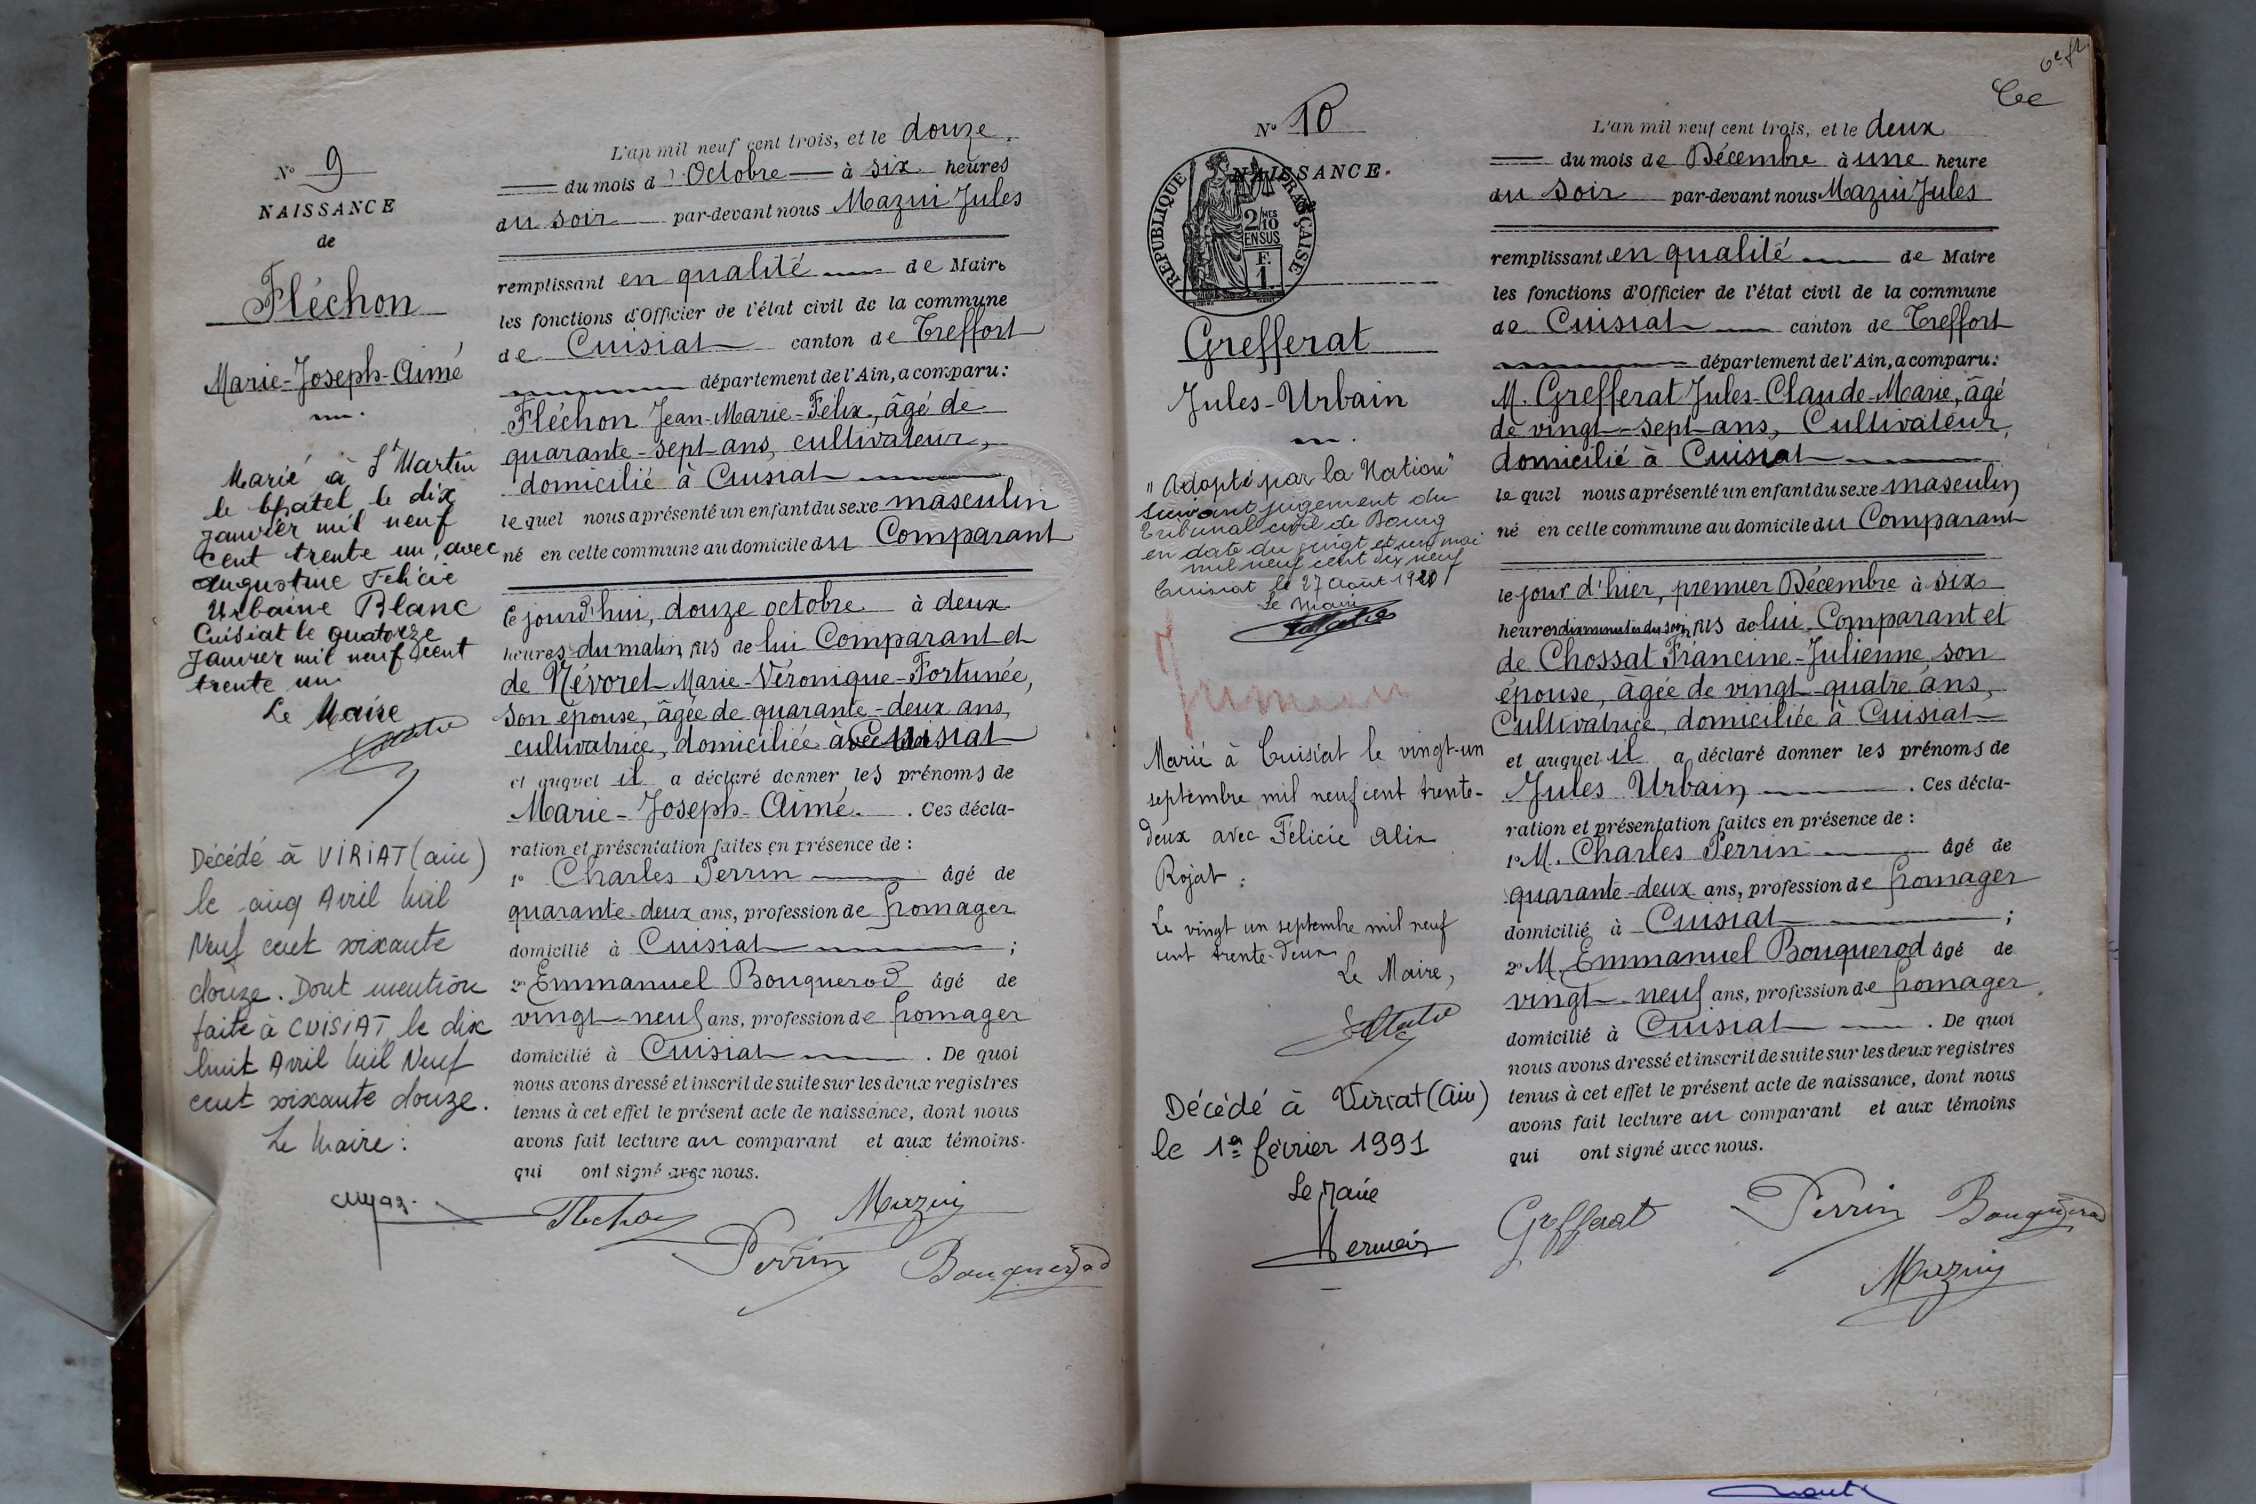 N° 9
NAISSANCE
de
Fléchon
Marie-Joseph-Aimé
Marié à St Martin
le Chatel le dix
janvier mil neuf
cent trente un, avec
Augustine Félicie
Urbaine Blanc
Cuisiat le quatorze
Janvier mil neuf cent
trente un
Le Maire
Décédé à VIRIAT (ain)
le cinq Avril Mil
Neuf cent soixante
douze. Dont mention
faite à CUISIAT, le dix
huit Avril Mil Neuf
cent soixante douze.
Le Maire :
L'an mil neuf cent trois, et le douze
du mois d'Octobre à six heures
du soir par-devant nous Mazui Jules
remplissant en qualité de Maire
les fonctions d'Officier de l'état civil de la commune
de Cuisiat canton de Treffort
département de l'Ain, a comparu :
Fléchon Jean-Marie-Félix, âgé de
quarante-sept ans, cultivateur,
domicilié à Cuisiat
le quel nous a présenté un enfant du sexe masculin
né en cette commune au domicile du Comparant
Cejourd'hui, douze octobre à deux
heures du matin, fils de lui Comparant et
de Névoret Marie-Véronique-Fortunée,
son épouse, âgée de quarante-deux ans,
cultivatrice, domiciliée à Cuisiat
et auquel il a déclaré donner les prénoms de
Marie-Joseph-Aimé. . Ces décla-
ration et présentation faites en présence de :
1° Charles Perrin âgé de
quarante-deux ans, profession de fromager
domicilié à Cuisiat ;
2° Emmanuel Bouquerod âgé de
vingt-neuf ans, profession de fromager
domicilié à Cuisiat . De quoi
nous avons dressé et inscrit de suite sur les deux registres
tenus à cet effet le présent acte de naissance, dont nous
avons fait lecture au comparant et aux témoins
qui ont signé avec nous.
Fléchon Mazui
Perrin Bouquerod
N° 10
NAISSANCE.
REPUBLIQUE FRANÇAISE
2/10MES
EN SUS
F.
1
Grefferat
Jules-Urbain
"Adopté par la Nation"
suivant jugement du
Tribunal civil de Bourg
en date du vingt et un mai
mil neuf cent dix neuf
Cuisiat le 27 Août 1920
Le Maire
Marié à Cuisiat le vingt-un
septembre mil neuf cent trente-
deux avec Félicie Alix
Rojat.
Le vingt un septembre mil neuf
cent trente-deux
Le Maire,
Décédé à Viriat (Ain)
le 1er février 1991
Le Maire
L'an mil neuf cent trois, et le deux
du mois de Décembre à une heure
du soir par-devant nous Mazui Jules
remplissant en qualité de Maire
les fonctions d'Officier de l'état civil de la commune
de Cuisiat canton de Treffort
département de l'Ain, a comparu :
M. Grefferat Jules-Claude-Marie, âgé
de vingt-sept ans, Cultivateur,
domicilié à Cuisiat
le quel nous a présenté un enfant du sexe masculin
né en cette commune au domicile du Comparant
le jour d'hier, premier Décembre à six
heures dix minutes du soir, fils de lui Comparant et
de Chossat Francine-Julienne, son
épouse, âgée de vingt-quatre ans,
Cultivatrice, domiciliée à Cuisiat
et auquel il a déclaré donner les prénoms de
Jules Urbain . Ces décla-
ration et présentation faites en présence de :
1° M. Charles Perrin âgé de
quarante-deux ans, profession de fromager
domicilié à Cuisiat ;
2° M. Emmanuel Bouquerod âgé de
vingt-neuf ans, profession de fromager
domicilié à Cuisiat . De quoi
nous avons dressé et inscrit de suite sur les deux registres
tenus à cet effet le présent acte de naissance, dont nous
avons fait lecture au comparant et aux témoins
qui ont signé avec nous.
Grefferat Perrin Bouquerod
Mazui